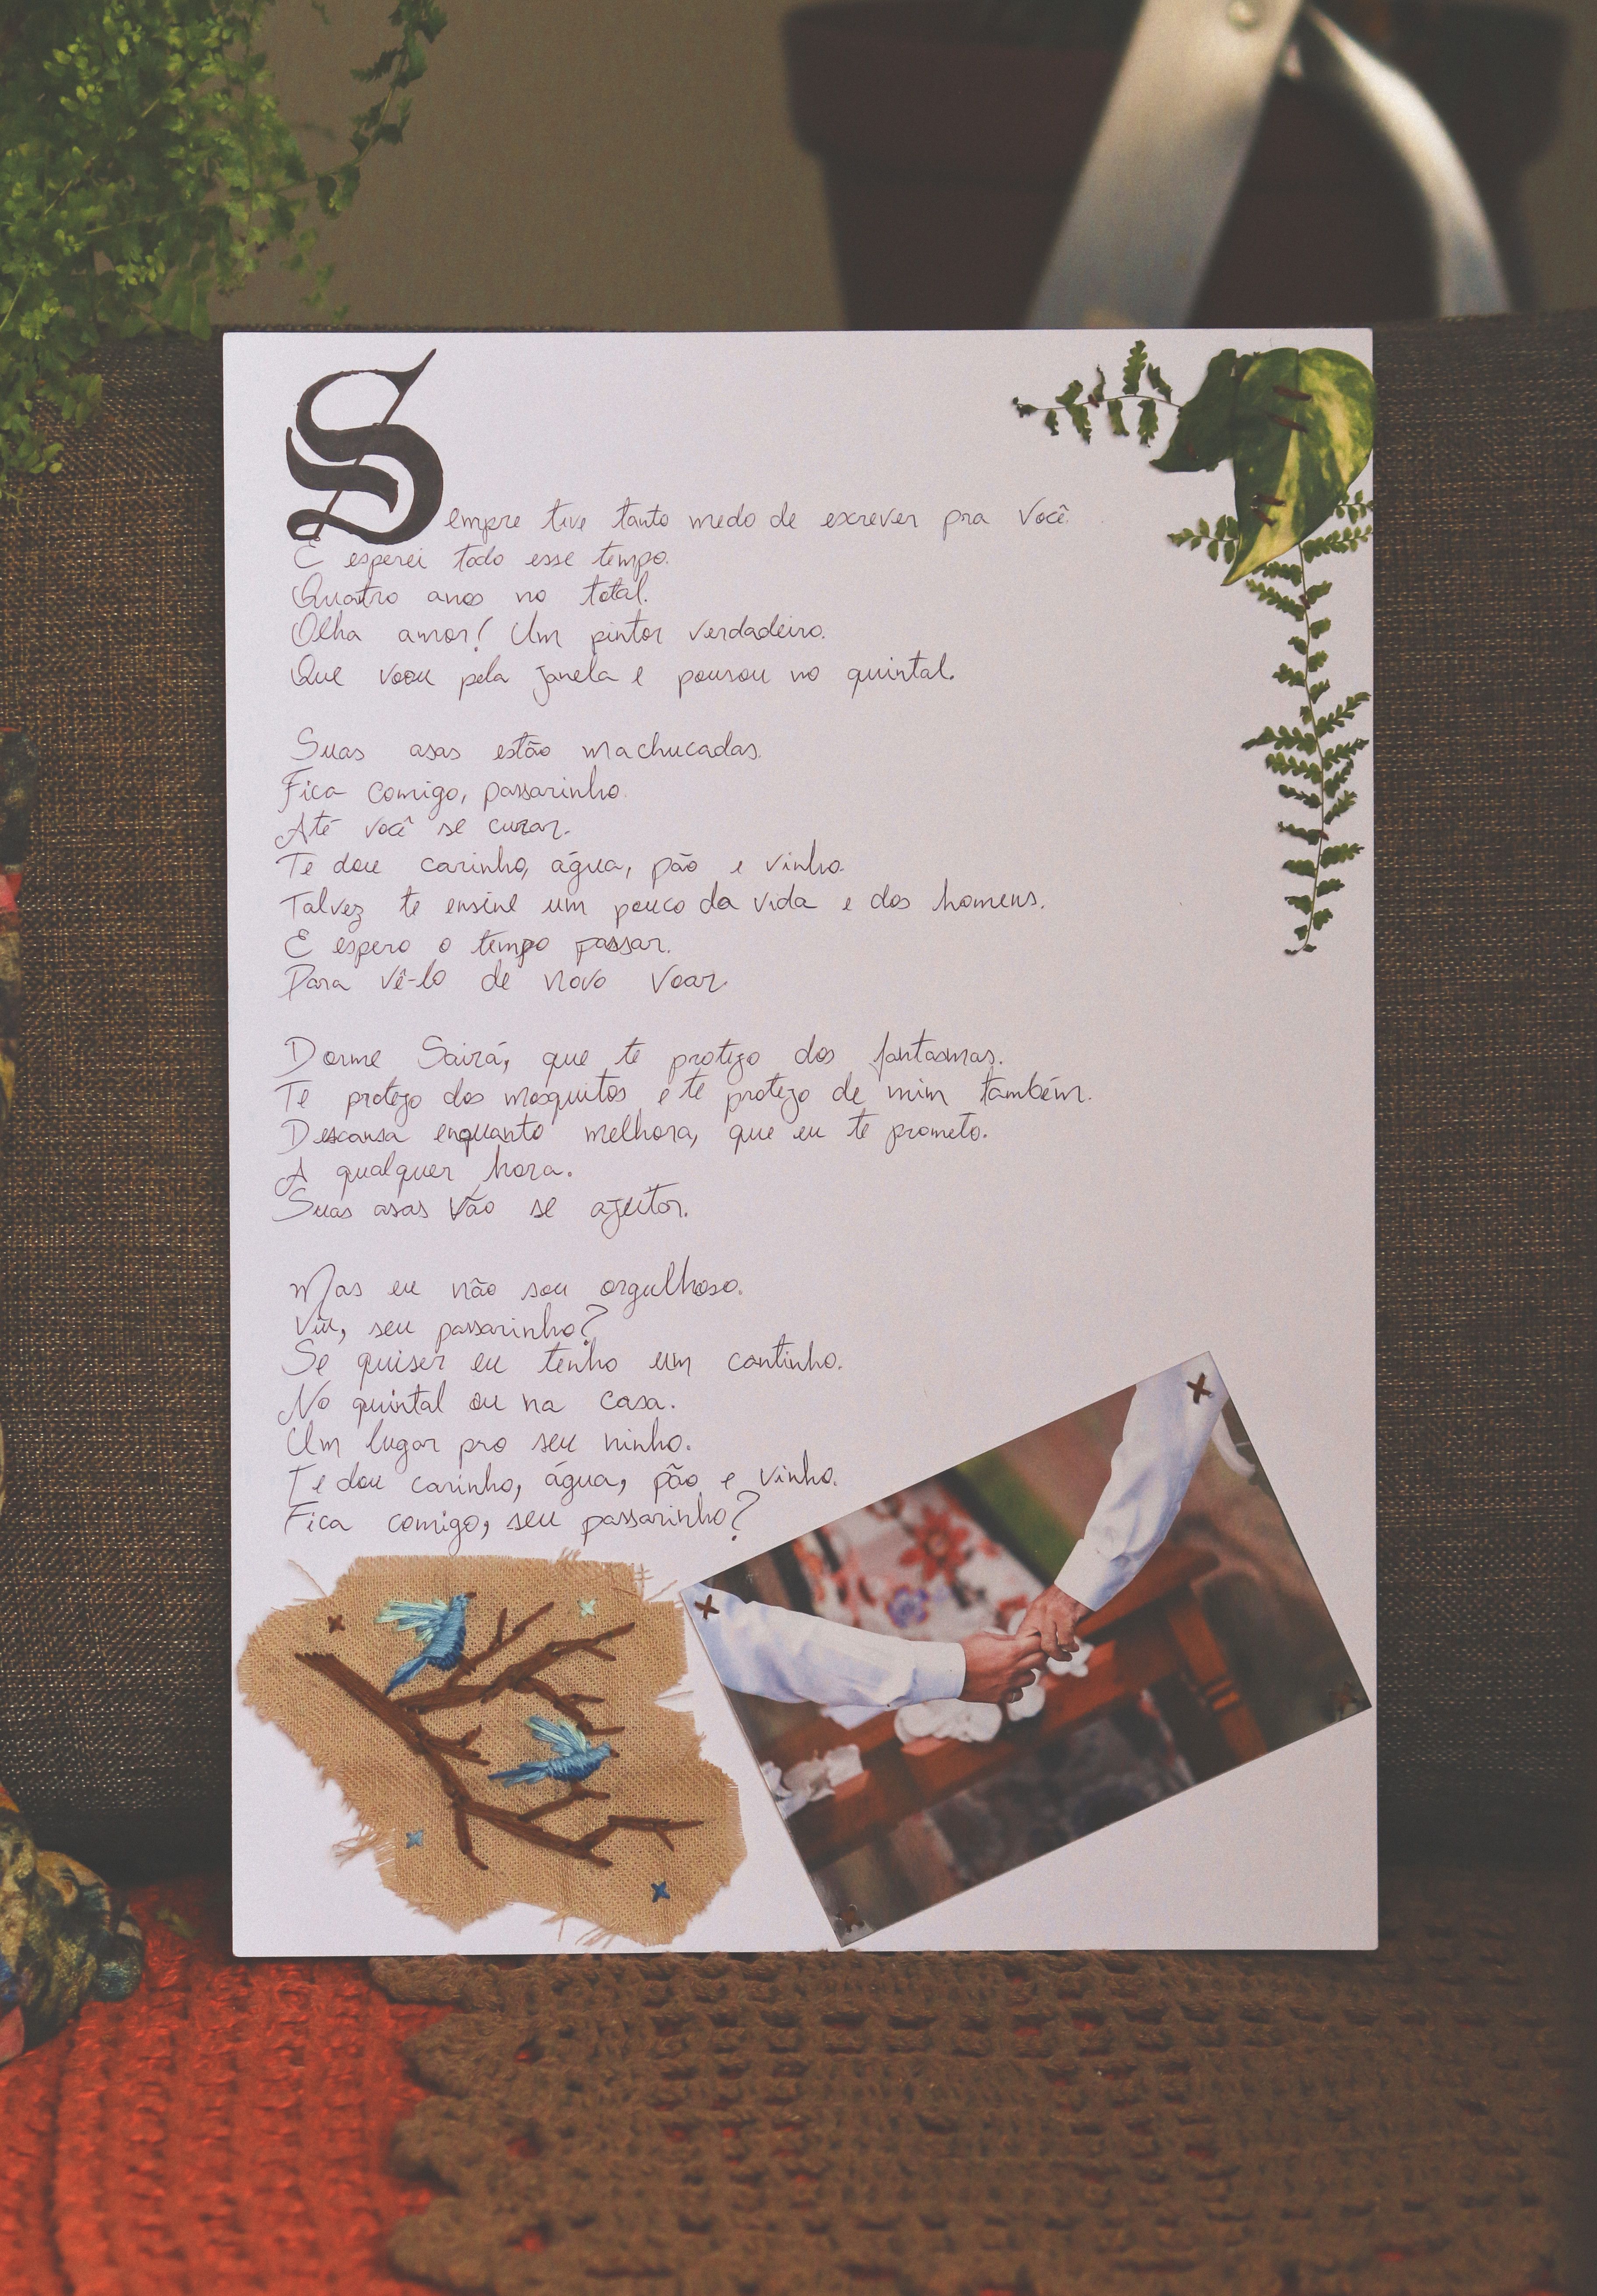 Sempre tive tanto medo de escrever pra você.
E esperei todo esse tempo.
Quatro anos no total.
Olha amor! Um pintor verdadeiro.
Que voou pela janela e pousou no quintal.
Suas asas estão machucadas.
Fica comigo, passarinho.
Até você se curar.
Te dou carinho, água, pão e vinho.
Talvez te ensine um pouco da vida e dos homens.
E espero o tempo passar.
Para vê-lo de novo voar.
Dorme Sairá, que te protejo dos fantasmas.
Te protejo dos mosquitos e te protejo de mim também.
Descansa enquanto melhora, que eu te prometo.
A qualquer hora.
Suas asas vão se ajeitar.
Mas eu não sou orgulhoso.
Viu, seu passarinho?
Se quiser eu tenho um cantinho.
No quintal ou na casa.
Um lugar pro seu ninho.
Te dou carinho, água, pão e vinho.
Fica comigo, seu passarinho?